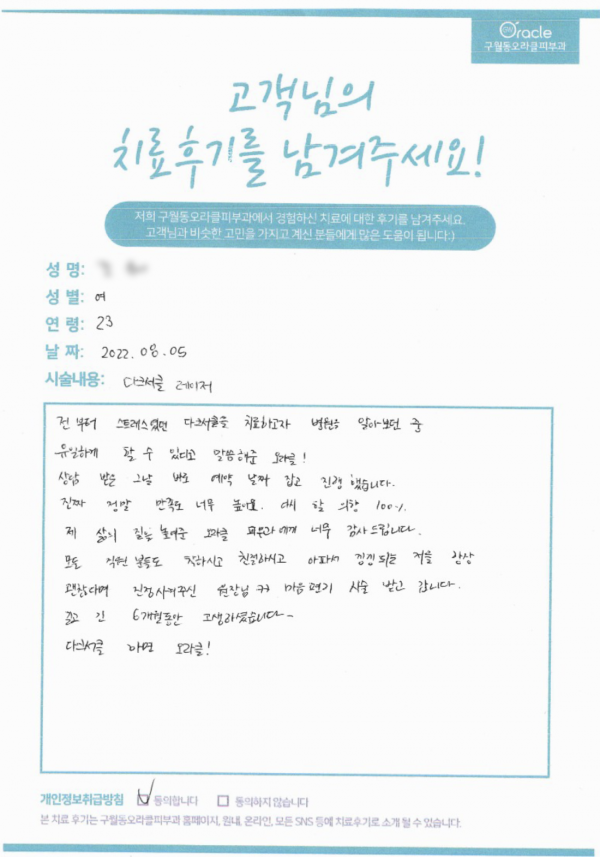 Oracle
구월동오라클피부과
고객님의
치료후기를 남겨주세요!
저희 구월동오라클피부과에서 경험하신 치료에 대한 후기를 남겨주세요.
고객님과 비슷한 고민을 가지고 계신 분들에게 많은 도움이 됩니다:)
성 명:
성 별: 여
연 령: 23
날 짜: 2022. 08. 05
시술내용: 다크서클 레이저
전 부터 스트레스였던 다크서클을 치료하고자 병원을 알아보던 중
유일하게 할 수 있다고 말씀해준 오라클!
상담 받은 그날 바로 예약 날짜 잡고 진행 했습니다.
진짜 정말 만족도 너무 높아요. 다시 할 의향 100%.
제 삶의 질을 높여준 오라클 피부과에게 너무 감사드립니다.
모든 직원 분들도 착하시고 친절하시고 아파서 낑낑대는 저를 항상
괜찮다며 진정시켜주신 원장님 ㅋㅋ 마음 편히 시술 받고 갑니다.
길고 긴 6개월동안 고생하셨습니다~
다크서클 하면 오라클!
개인정보취급방침 ☑ 동의합니다 ☐ 동의하지 않습니다
본 치료 후기는 구월동오라클피부과 홈페이지, 원내, 온라인, 모든 SNS 등에 치료후기로 소개 될 수 있습니다.